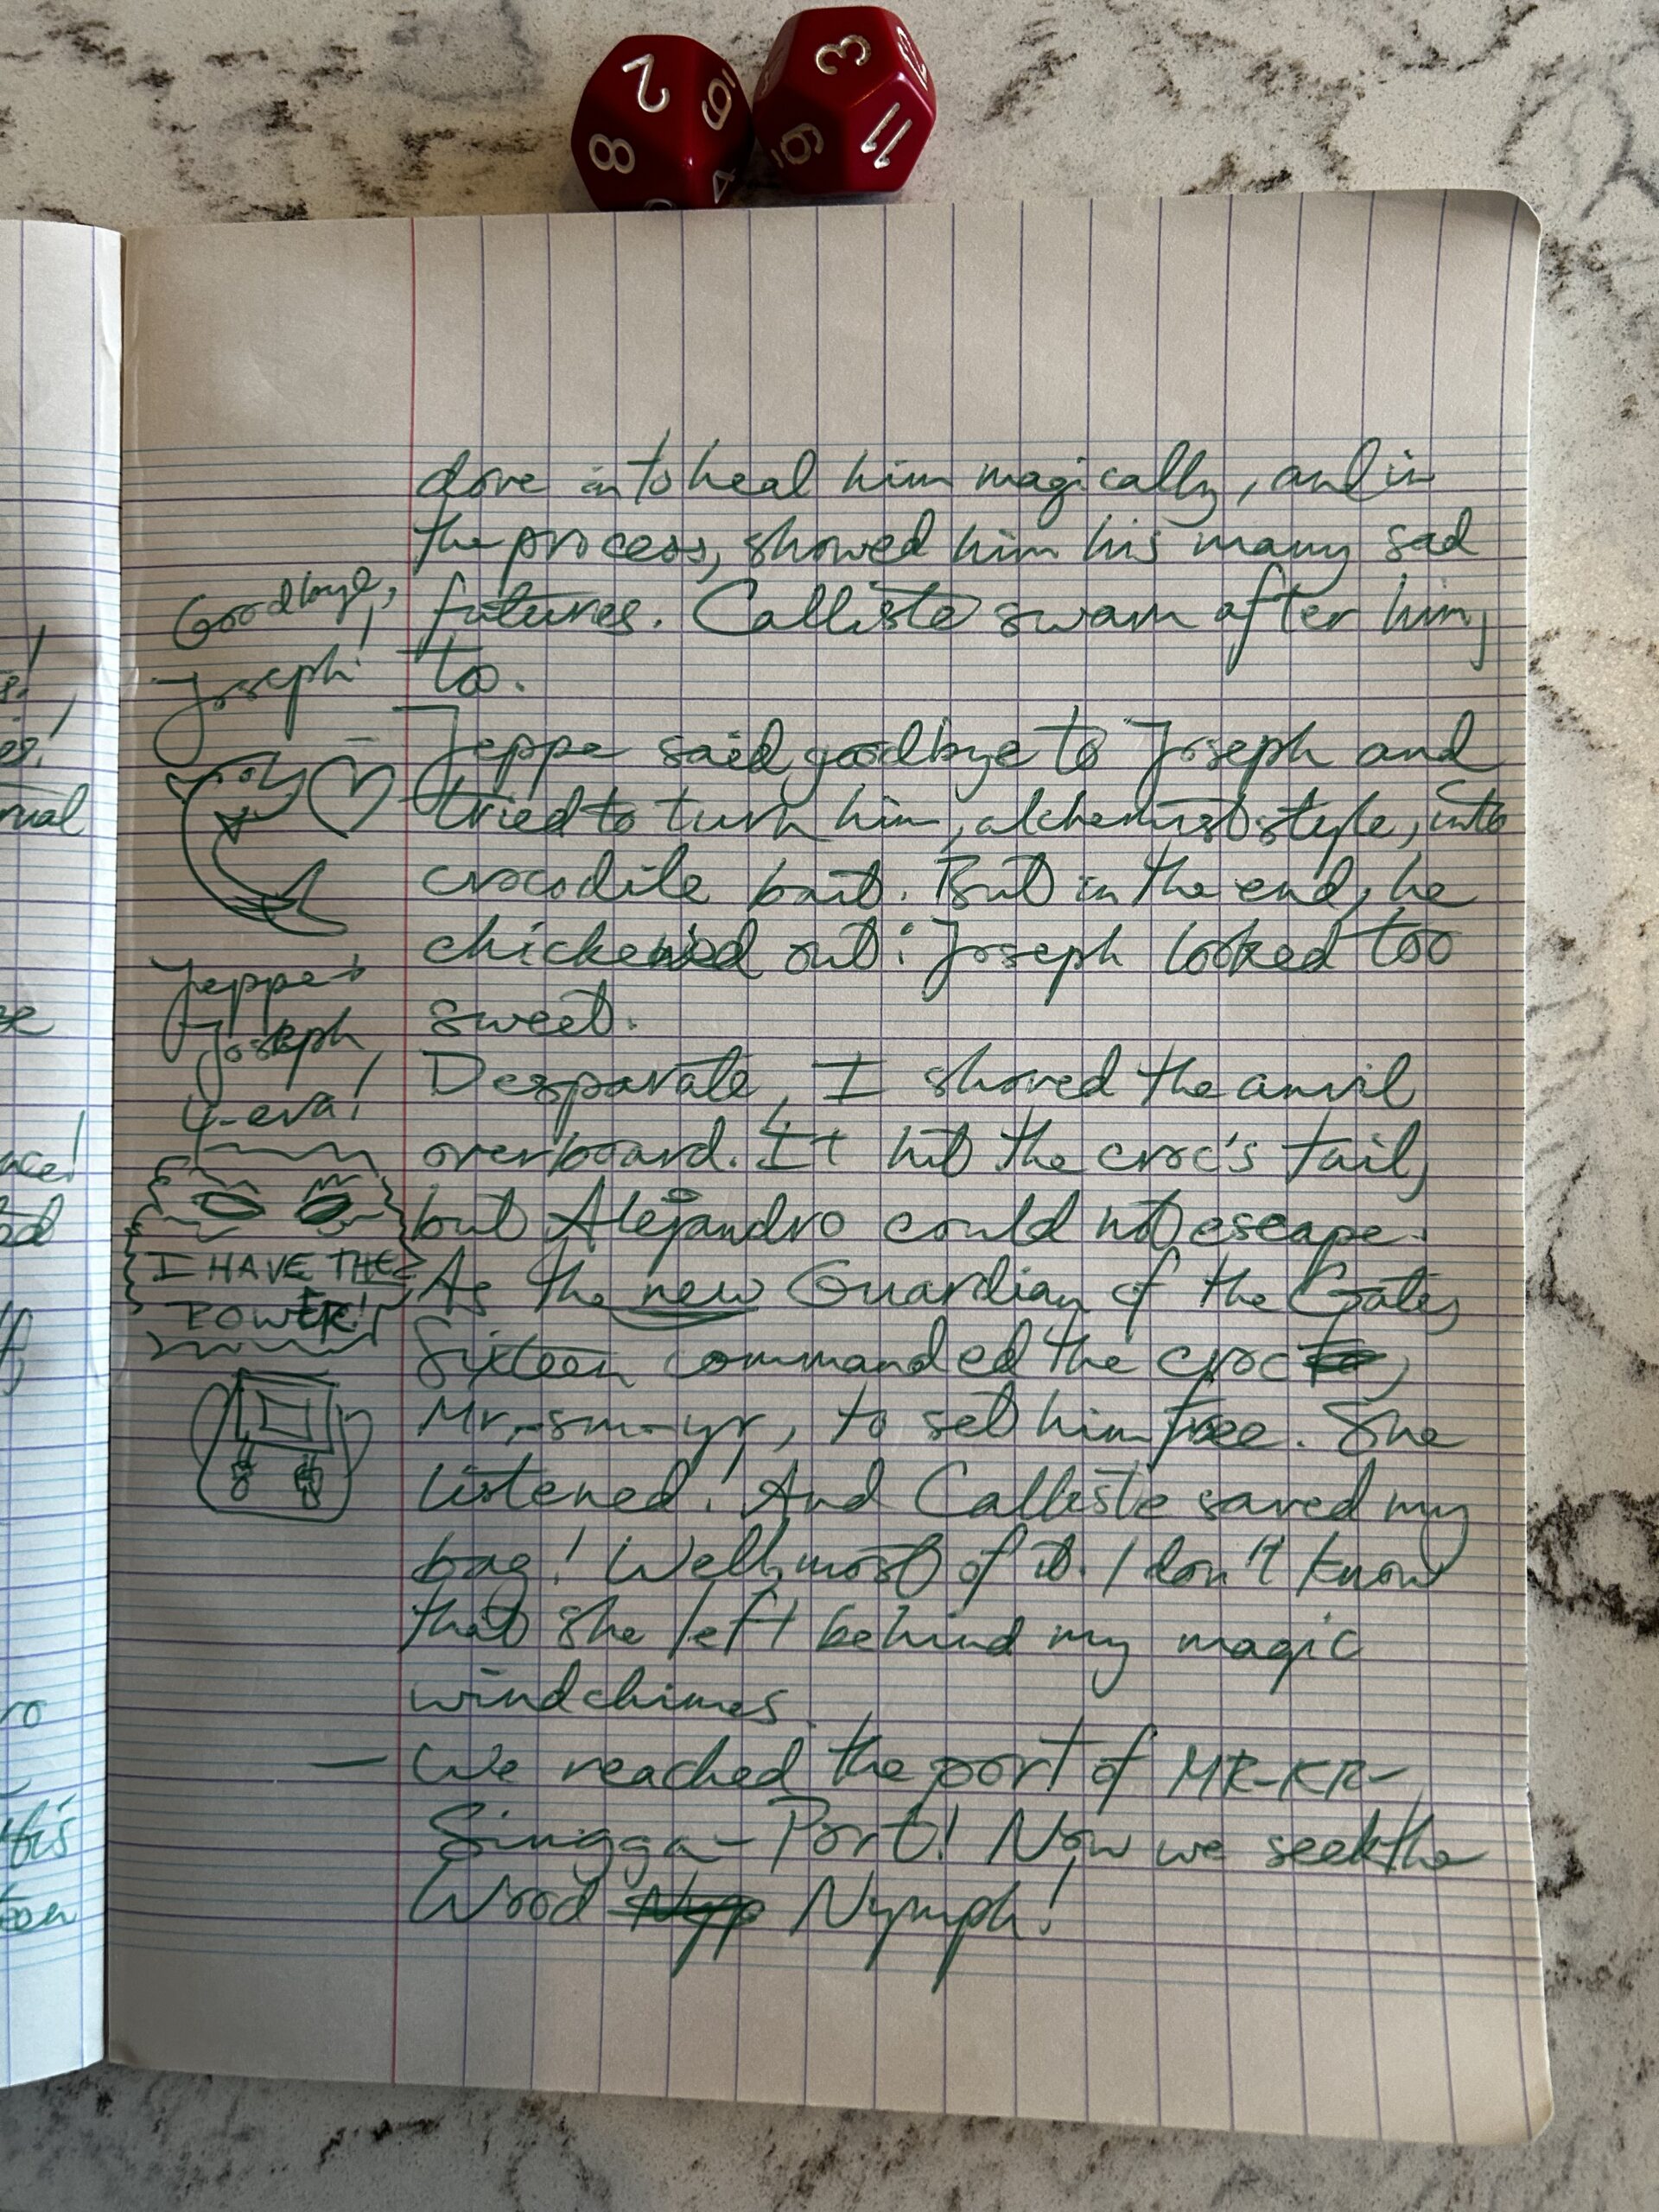 2
8
9
4
3
9
11
dove in to heal him magically, and in
the process, showed him his many sad
futures. Calliste swam after him,
to.
Jeppe said goodbye to Joseph and
tried to turn him, alchemist style, into
crocodile bait. But in the end, he
chickened out: Joseph looked too
sweet.
Desparate, I shoved the anvil
overboard. It hit the croc's tail,
but Alejandro could not escape.
As the new Guardian of the Gate,
Sixteen commanded the croc,
Mr.-sm-yr, to set him free. She
listened! And Calliste saved my
bag! Well, most of it. I don't know
that she left behind my magic
windchimes.
— We reached the port of MR-KR-
Singga-Port! Now we seek the
Wood Nymph!
Goodbye,
Joseph!
Jeppe +
Joseph
4-eva!
I HAVE THE
POWER!